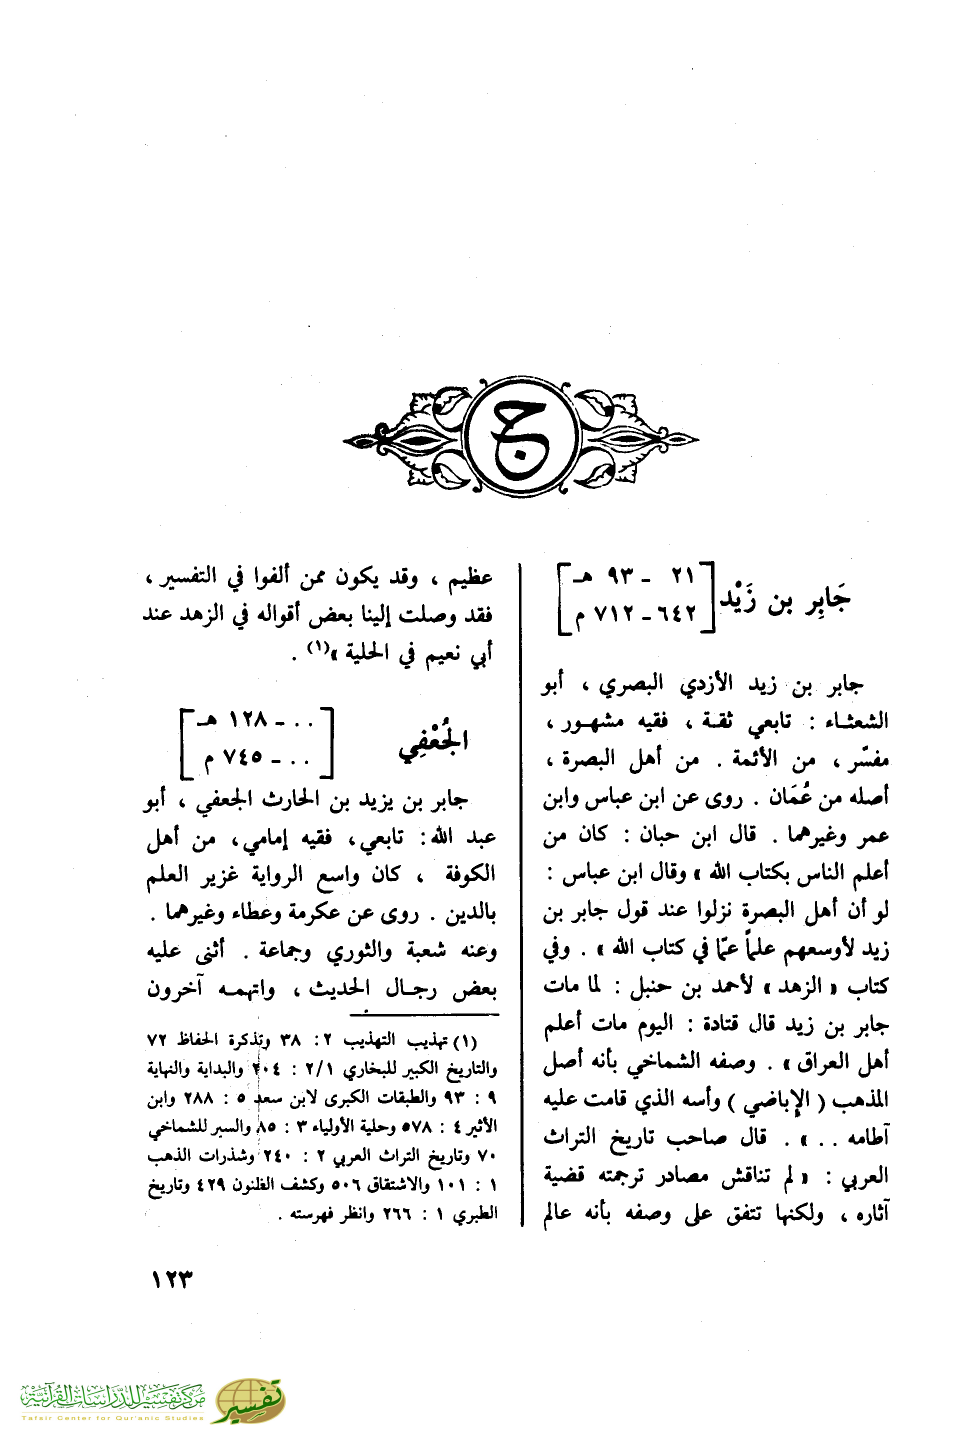 ج
جَابِر بن زَيْد
[ ٢١ - ٩٣ هـ
٦٤٢ - ٧١٢ م ]
جابر بن زيد الأزدي البصري ، أبو
الشعثاء : تابعي ثقة ، فقيه مشهور ،
مفسّر ، من الأئمة . من أهل البصرة ،
أصله من عُمَان . روى عن ابن عباس وابن
عمر وغيرهما . قال ابن حبان : كان من
أعلم الناس بكتاب الله » وقال ابن عباس :
لو أن أهل البصرة نزلوا عند قول جابر بن
زيد لأوسعهم علماً عمّا في كتاب الله » . وفي
كتاب « الزهد » لأحمد بن حنبل : لما مات
جابر بن زيد قال قتادة : اليوم مات أعلم
أهل العراق » . وصفه الشماخي بأنه أصل
المذهب ( الإباضي ) وأسه الذي قامت عليه
آطامه . . » . قال صاحب تاريخ التراث
العربي : « لم تناقش مصادر ترجمته قضية
آثاره ، ولكنها تتفق على وصفه بأنه عالم
عظيم ، وقد يكون ممن ألفوا في التفسير ،
فقد وصلت إلينا بعض أقواله في الزهد عند
أبي نعيم في الحلية »(١) .
الجُعْفِي
[ . . - ١٢٨ هـ
. . - ٧٤٥ م ]
جابر بن يزيد بن الحارث الجعفي ، أبو
عبد الله : تابعي ، فقيه إمامي ، من أهل
الكوفة ، كان واسع الرواية غزير العلم
بالدين . روى عن عكرمة وعطاء وغيرهما .
وعنه شعبة والثوري وجماعة . أثنى عليه
بعض رجال الحديث ، واتهمه آخرون
(١) تهذيب التهذيب ٢ : ٣٨ وتذكرة الحفاظ ٧٢
والتاريخ الكبير للبخاري ٢/١ : ٢٠٤ والبداية والنهاية
٩ : ٩٣ والطبقات الكبرى لابن سعد ٥ : ٢٨٨ وابن
الأثير ٤ : ٥٧٨ وحلية الأولياء ٣ : ٨٥ والسير للشماخي
٧٠ وتاريخ التراث العربي ٢ : ٢٤٠ وشذرات الذهب
١ : ١٠١ والاشتقاق ٥٠٦ وكشف الظنون ٤٢٩ وتاريخ
الطبري ١ : ٢٦٦ وانظر فهرسته .
١٢٣
مركز تفسير للدراسات القرآنية
Tafsir Center for Qur'anic Studies
تفسير